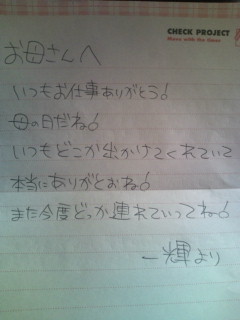 CHECK PROJECT
お母さんへ
いつもお仕事ありがとう!
母の日だね!
いつもどこか出かけてくれていて
本当にありがとおね!
また今度どっか連れていってね!
一輝より